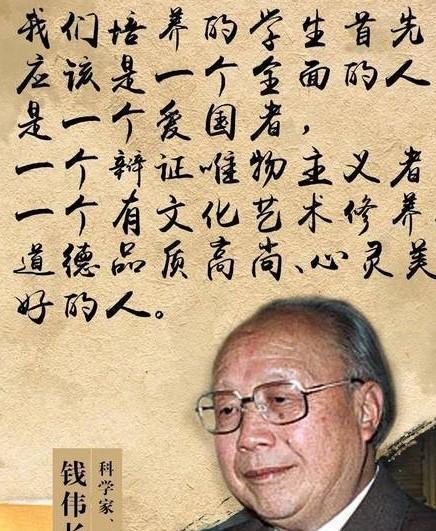 我们培养的学生首先
应该是一个全面的人
是一个爱国者,
一个辩证唯物主义者
一个有文化艺术修养、
道德品质高尚、心灵美
好的人。
科学家、
钱伟长